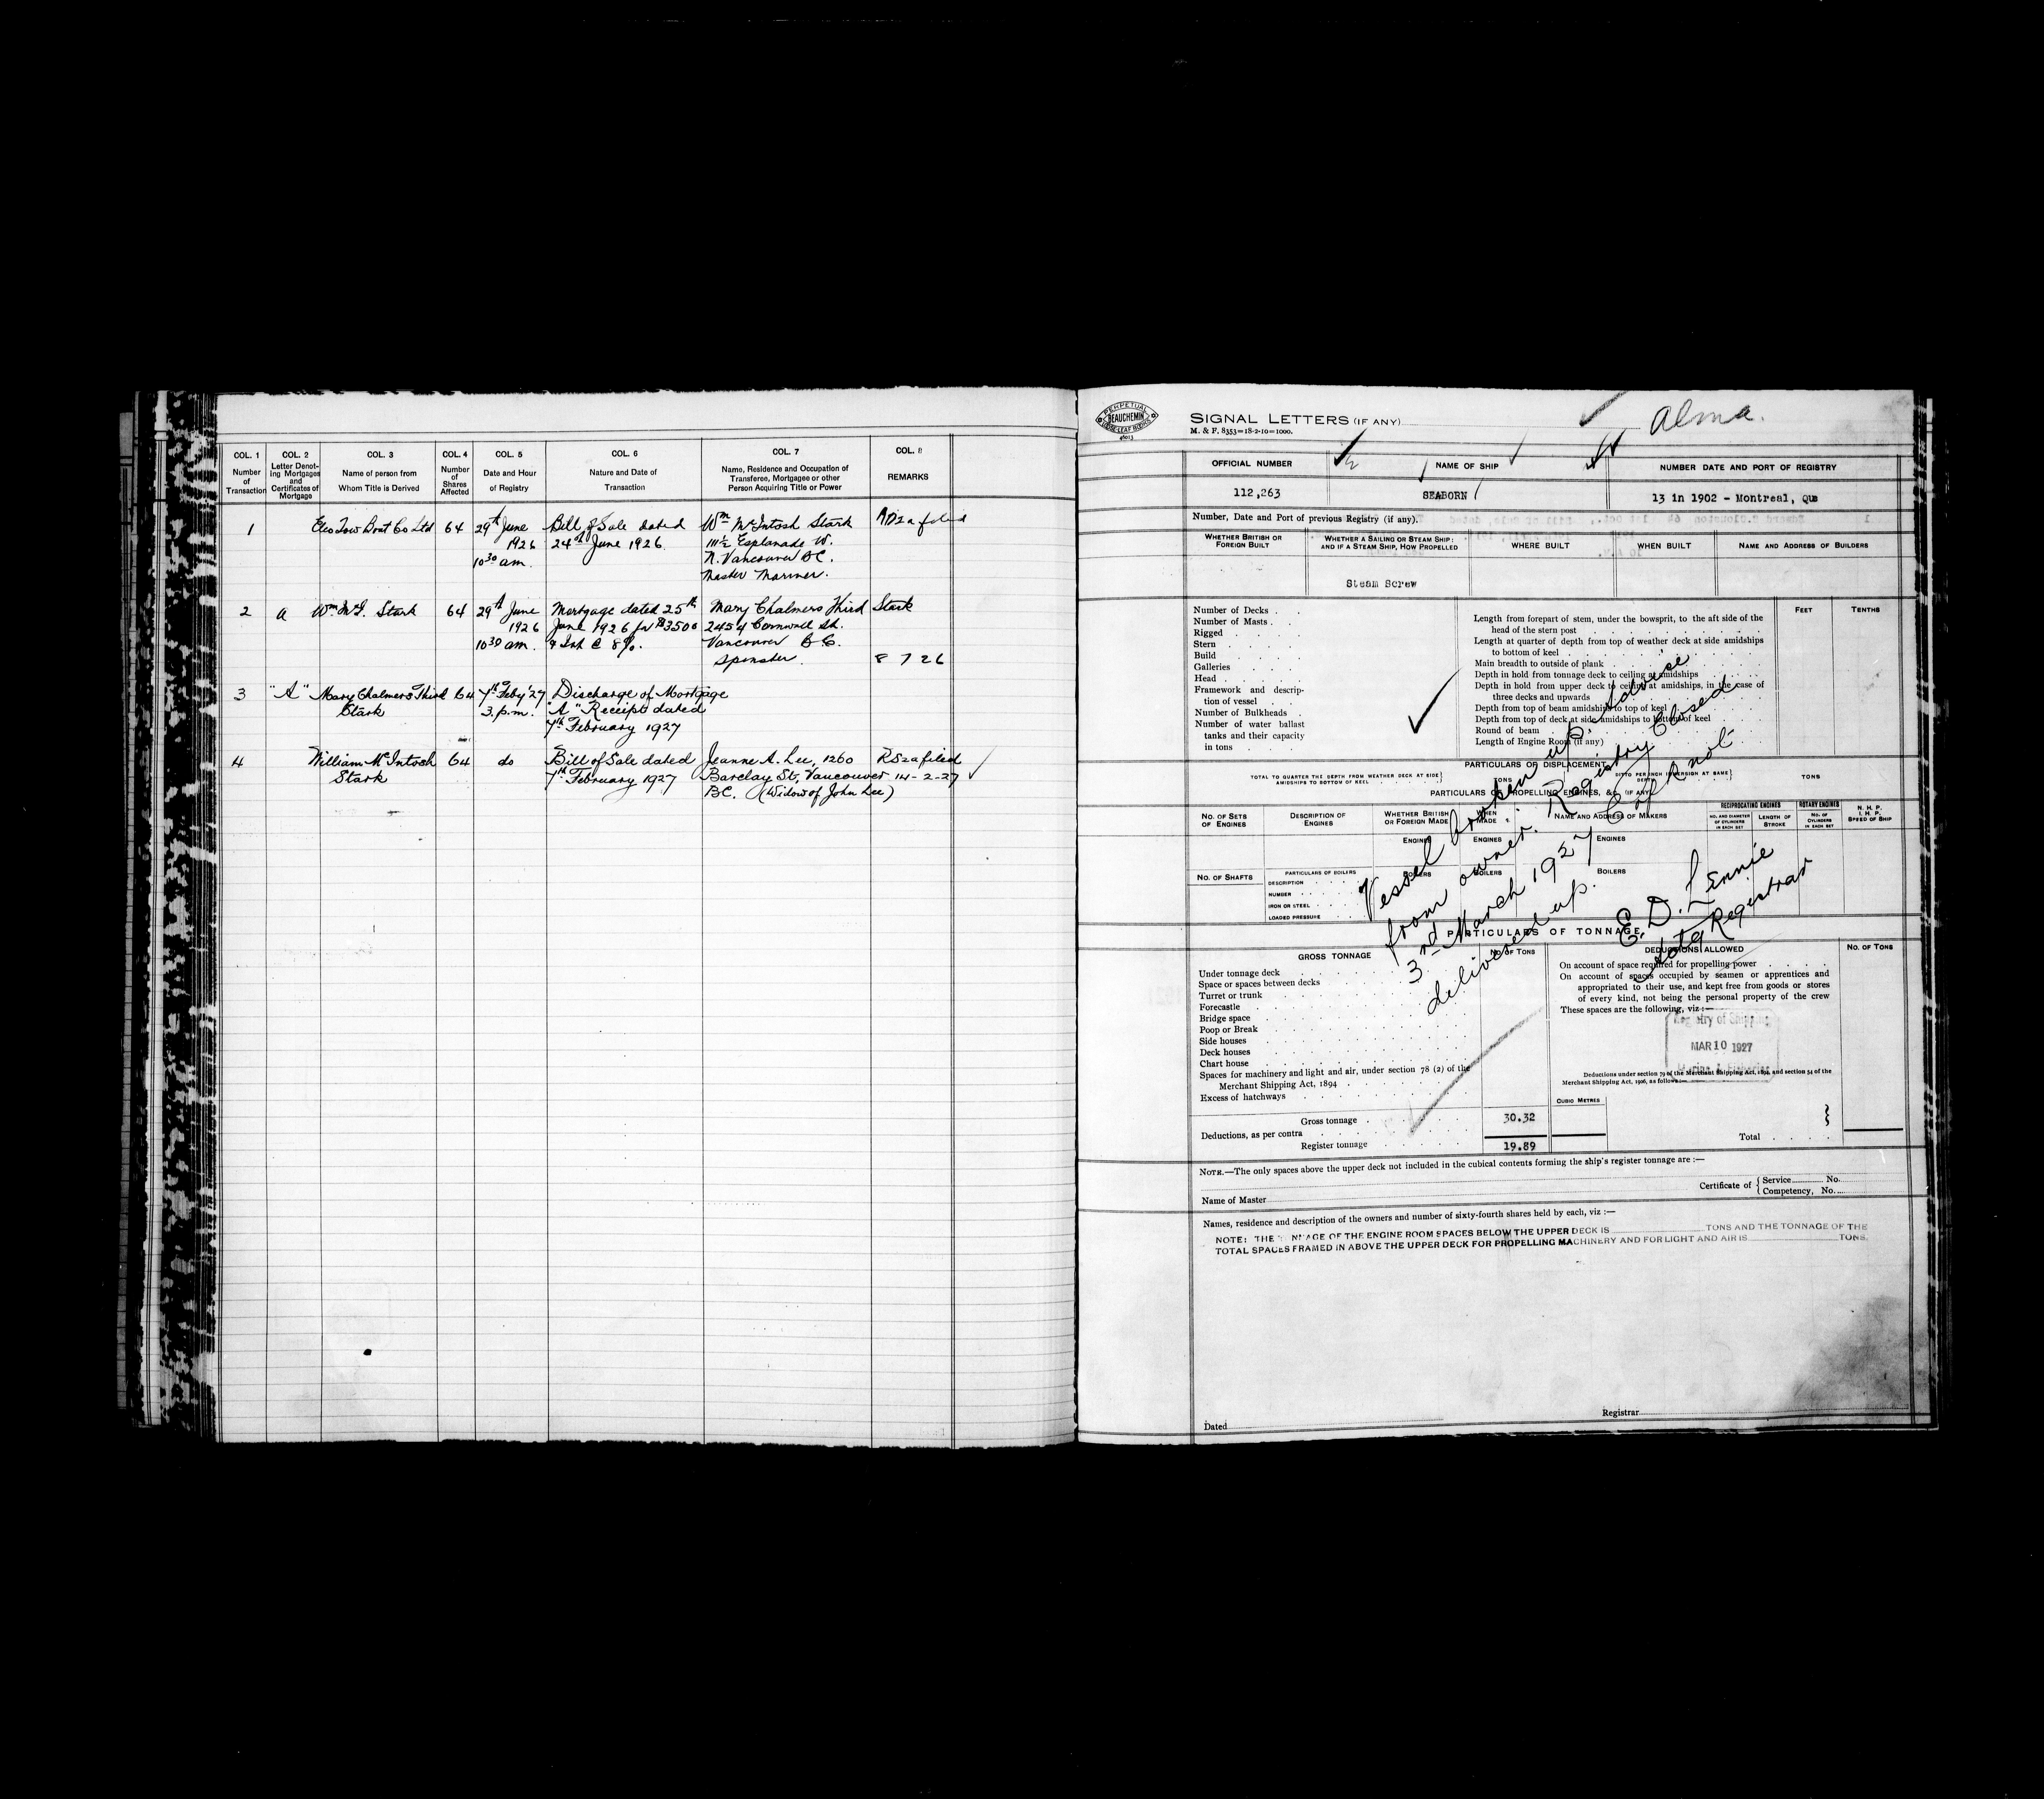 COL. 1
Number
of
Transaction
COL. 2
Letter Denot-
ing Mortgages
and
Certificates of
Mortgage
COL. 3
Name of person from
Whom Title is Derived
COL. 4
Number
of
Shares
Affected
COL. 5
Date and Hour
of Registry
COL. 6
Nature and Date of
Transaction
COL. 7
Name, Residence and Occupation of
Transferee, Mortgagee or other
Person Acquiring Title or Power
COL. 8
REMARKS
1 Tow Boat Co Ltd 64 29th June Bill of Sale dated Wm McIntosh Stark
1926 24th June 1926 111½ Esplanade W.
10 30 am. N. Vancouver B.C.
Master Mariner.
2 a Wm McI. Stark 64 29th June Mortgage dated 25th Mary Chalmers Third Stark
1926 June 1926 for $3500 2454 Cornwall St.
10 30 am. & Int @ 8%. Vancouver B.C.
Spinster. 8 7 26
3 "A" Mary Chalmers Third 64 7th Feby '27 Discharge of Mortgage
Stark 3 p.m. "A" Receipt dated
7th February 1927
4 William McIntosh 64 do Bill of Sale dated Jeanne A. Lee, 1260 filed
Stark 7th February 1927 Barclay St, Vancouver 14-2-27
BC. (Widow of John Lee)
PERPETUAL
BEAUCHEMIN
LOOSE-LEAF BOOKS
SIGNAL LETTERS (IF ANY)
M. & F. 8353=18-2-10=1000.
Alma.
OFFICIAL NUMBER
NAME OF SHIP
NUMBER DATE AND PORT OF REGISTRY
112,263
SEABORN
13 in 1902 - Montreal, Que
Number, Date and Port of previous Registry (if any).
WHETHER BRITISH OR
FOREIGN BUILT
WHETHER A SAILING OR STEAM SHIP:
AND IF A STEAM SHIP, HOW PROPELLED
WHERE BUILT
WHEN BUILT
NAME AND ADDRESS OF BUILDERS
Steam Screw
Number of Decks
Number of Masts
Rigged
Stern
Build
Galleries
Head
Framework and descrip-
tion of vessel
Number of Bulkheads
Number of water ballast
tanks and their capacity
in tons
FEET
TENTHS
Length from forepart of stem, under the bowsprit, to the aft side of the
head of the stern post
Length at quarter of depth from top of weather deck at side amidships
to bottom of keel
Main breadth to outside of plank
Depth in hold from tonnage deck to ceiling at amidships
Depth in hold from upper deck to ceiling at amidships, in the case of
three decks and upwards
Depth from top of beam amidships to top of keel
Depth from top of deck at side amidships to bottom of keel
Round of beam
Length of Engine Room (if any)
PARTICULARS OF DISPLACEMENT
TOTAL TO QUARTER THE DEPTH FROM WEATHER DECK AT SIDE
AMIDSHIPS TO BOTTOM OF KEEL
TONS
DITTO PER INCH IMMERSION AT SAME
DEPTH
TONS
PARTICULARS OF PROPELLING ENGINES, &c. (IF ANY)
NO. OF SETS
OF ENGINES
DESCRIPTION OF
ENGINES
WHETHER BRITISH
OR FOREIGN MADE
WHEN
MADE
NAME AND ADDRESS OF MAKERS
RECIPROCATING ENGINES
NO. AND DIAMETER
OF CYLINDERS
IN EACH SET
LENGTH OF
STROKE
ROTARY ENGINES
NO. OF
CYLINDERS
IN EACH SET
N. H. P.
I. H. P.
SPEED OF SHIP
ENGINES
ENGINES
ENGINES
NO. OF SHAFTS
PARTICULARS OF BOILERS
DESCRIPTION
NUMBER
IRON OR STEEL
LOADED PRESSURE
BOILERS
BOILERS
BOILERS
Vessel broken up. Advice
from owner. Registry Closed
3rd March 1927 C of R not
delivered up.
E. D. Lennie
Registrar
PARTICULARS OF TONNAGE
GROSS TONNAGE
NO. OF TONS
DEDUCTIONS ALLOWED
NO. OF TONS
Under tonnage deck
Space or spaces between decks
Turret or trunk
Forecastle
Bridge space
Poop or Break
Side houses
Deck houses
Chart house
Spaces for machinery and light and air, under section 78 (2) of the
Merchant Shipping Act, 1894
Excess of hatchways
Gross tonnage 30.32
Deductions, as per contra
Register tonnage 19.89
On account of space required for propelling power
On account of spaces occupied by seamen or apprentices and
appropriated to their use, and kept free from goods or stores
of every kind, not being the personal property of the crew
These spaces are the following, viz :—
Registry of Shipping
MAR 10 1927
Marine & Fisheries
Deductions under section 79 of the Merchant Shipping Act, 1894, and section 54 of the
Merchant Shipping Act, 1906, as follows :—
CUBIC METRES
Total
NOTE.—The only spaces above the upper deck not included in the cubical contents forming the ship's register tonnage are :—
Name of Master
Certificate of { Service No.
Competency, No.
Names, residence and description of the owners and number of sixty-fourth shares held by each, viz :—
NOTE: THE TONNAGE OF THE ENGINE ROOM SPACES BELOW THE UPPER DECK IS TONS AND THE TONNAGE OF THE
TOTAL SPACES FRAMED IN ABOVE THE UPPER DECK FOR PROPELLING MACHINERY AND FOR LIGHT AND AIR IS TONS.
Dated
Registrar